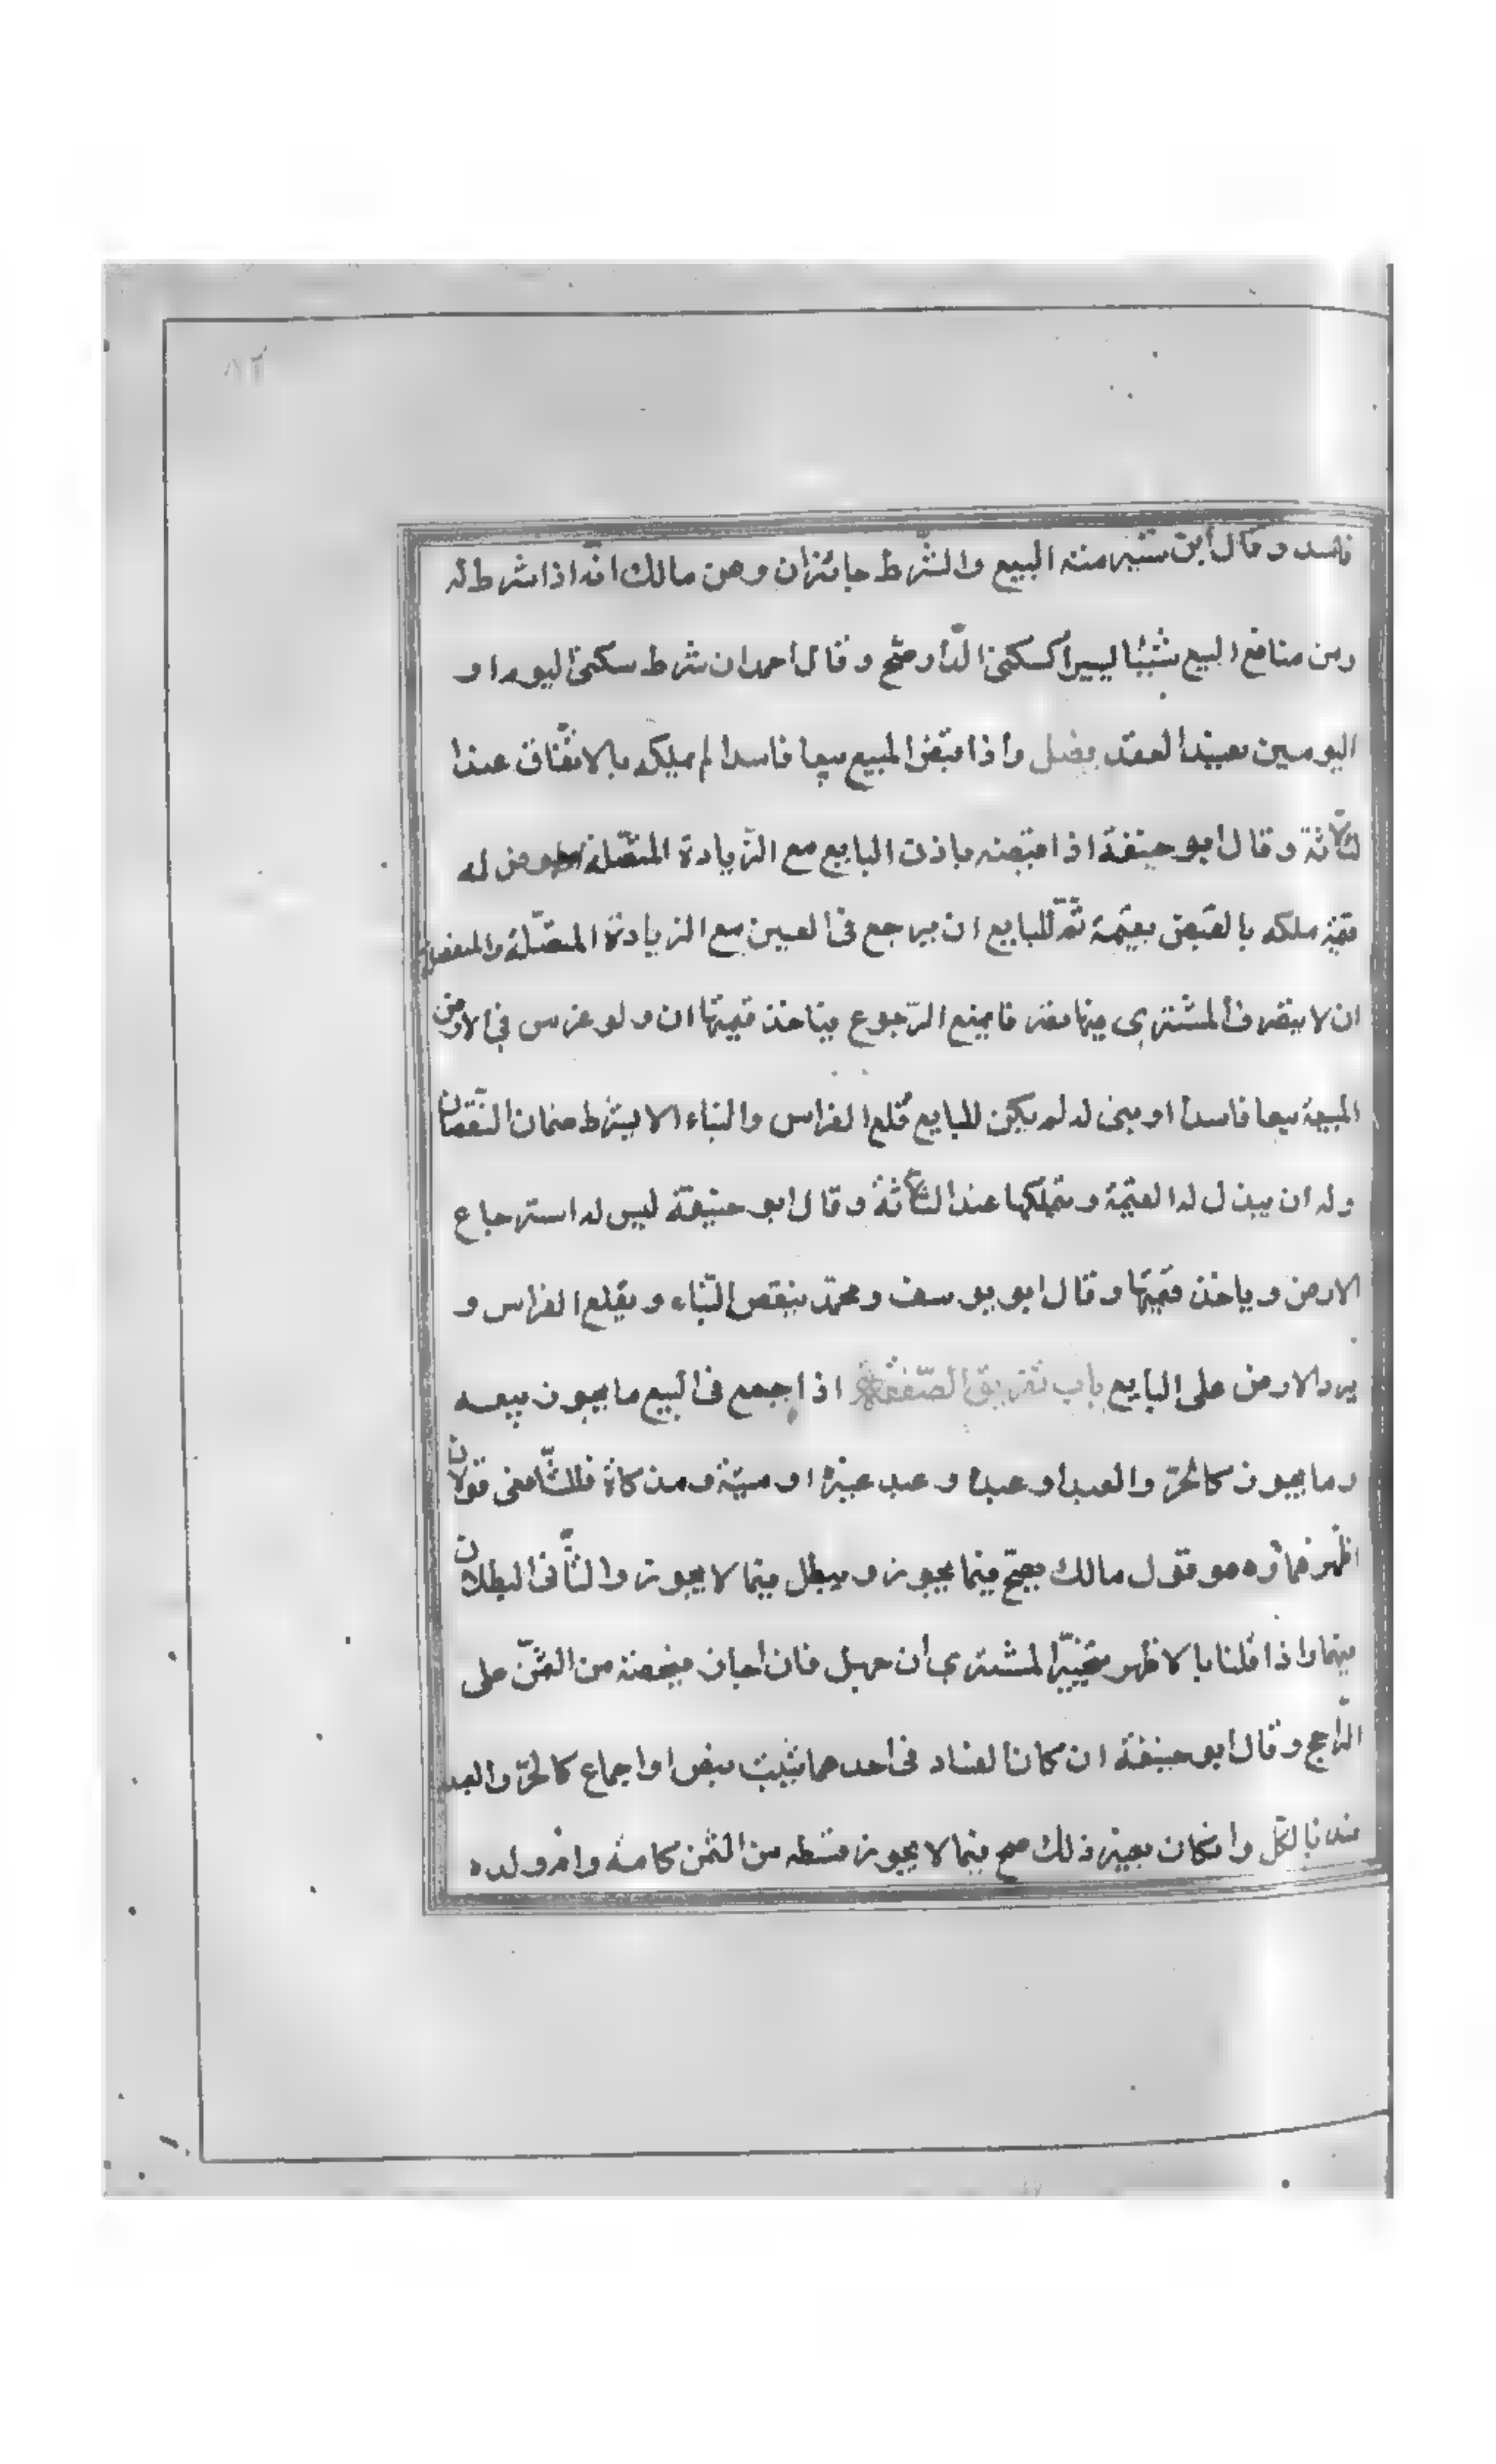 فاسد وقال ابن شبرمنه البيع والشّرط جائزان وعن مالك انّه اذا شرط له
ومن منافع البيع شيئا ليسيرا كسكنى الدّار صحّ وقال احمد ان شرط سكنى اليوم او
اليومين لعقد وا ذا قبض المبيع بيعا فاسدا لم يملكه بالاتّفاق عند ا
لثلاثة وقال ابو حنيفة اذا قبضه باذن البايع مع الزّيادة المتّصلة عوض له
قيمة ملكه بالقبض بقيمة ثمّ للبايع ان يرجع فى العين مع الزيادة المتّصلة والمنفصلة
ان لا يتصرف المشترى فيها يمنع الرّجوع فياخذ قيمتها ان ولو غرس في الارض
المبيعة بيعا فاسدا او بنى له لم يكن للبايع قلع الغراس والبناء الا بشرط ضمان النّقصان
وله ان يبذل له القيمة ويتملّكها عند الثلاثة وقال ابو حنيفة ليس له استرجاع
الارض وياخذ قيمتها وقال ابو يوسف ومحمّد ينقص البّناء ويقلع الغراس و
يرد الارض على البايع باب تفريق الصّفقة اذا جمع فى البيع ما يجوز بيعه
وما يجوز كالحرّ والعبد او عبده وعبد غيره او ميتة ومذكاة فللشّافعى قولان
اظهرهما وهو قول مالك يصحّ فيما يجوز ويبطل فيما لا يجوز والثّانى البطلان
فيهما واذا قلنا بالاظهر يتخيّر المشترى ان جهل فان اجاز فبحصته من الثّمن على
الرّاجح وقال ابو حنيفة ان كان الفساد فى احدهما يثبت بنص او اجماع كالحرّ والعبد
بالكل وان كان بغير ذلك صح فيما لا يجوز بقسطه من الثمن كامة وام ولده